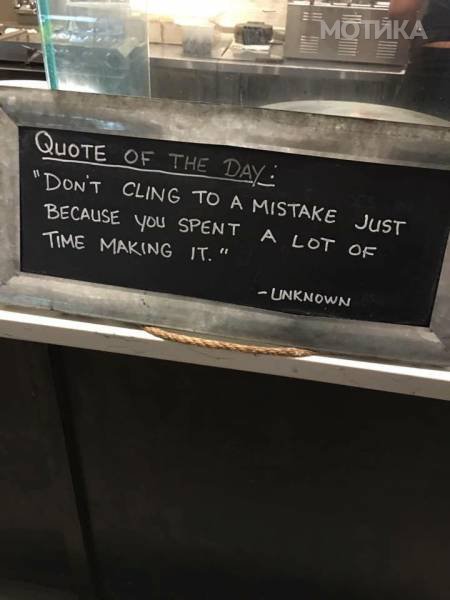 МОТИКА
QUOTE OF THE DAY:
"DON'T CLING TO A MISTAKE JUST
BECAUSE YOU SPENT A LOT OF
TIME MAKING IT."
-UNKNOWN